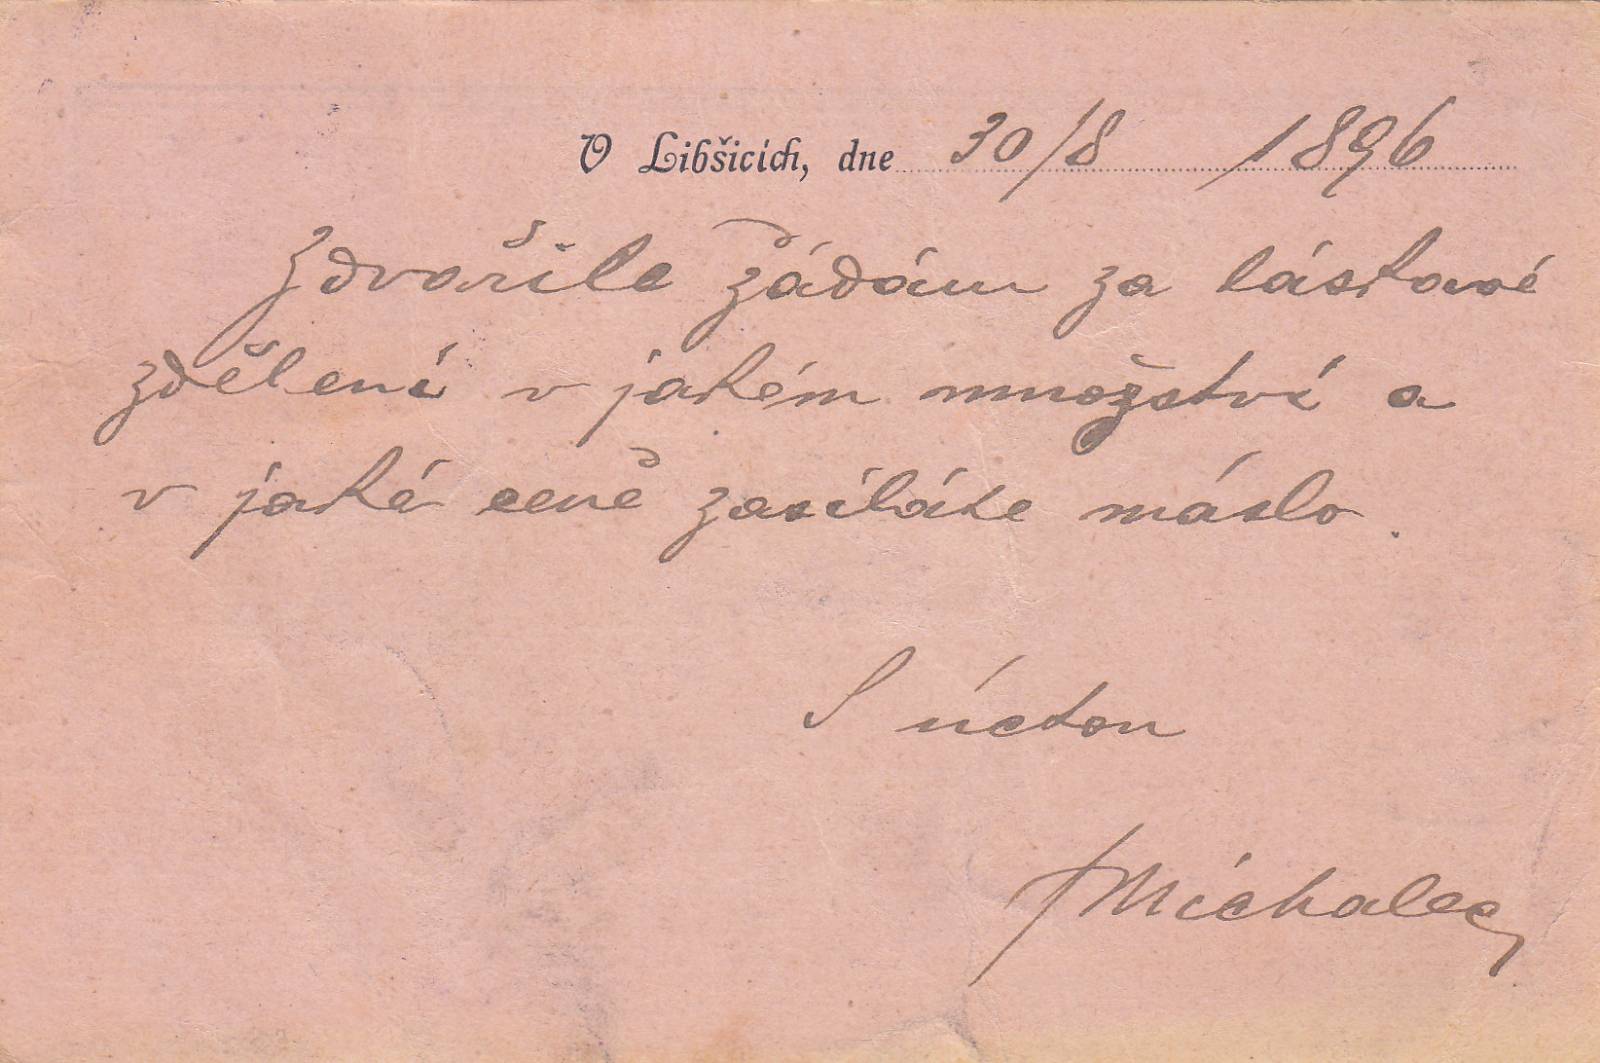 V Libšicích, dne 30/8 1896
Zdvořile žádám za láskavé
zdělení v jakém množství a
v jaké ceně zasíláte máslo.
S úctou
Michalec